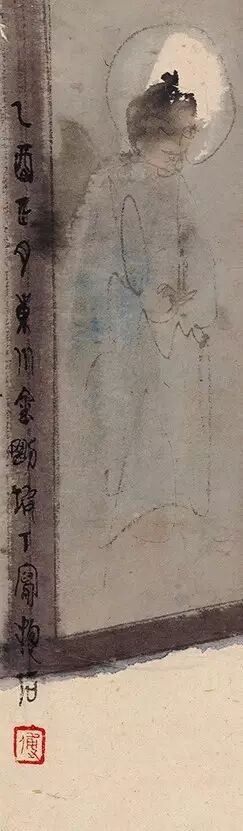 乙酉正月東川金剛坡下寫抱石
傅